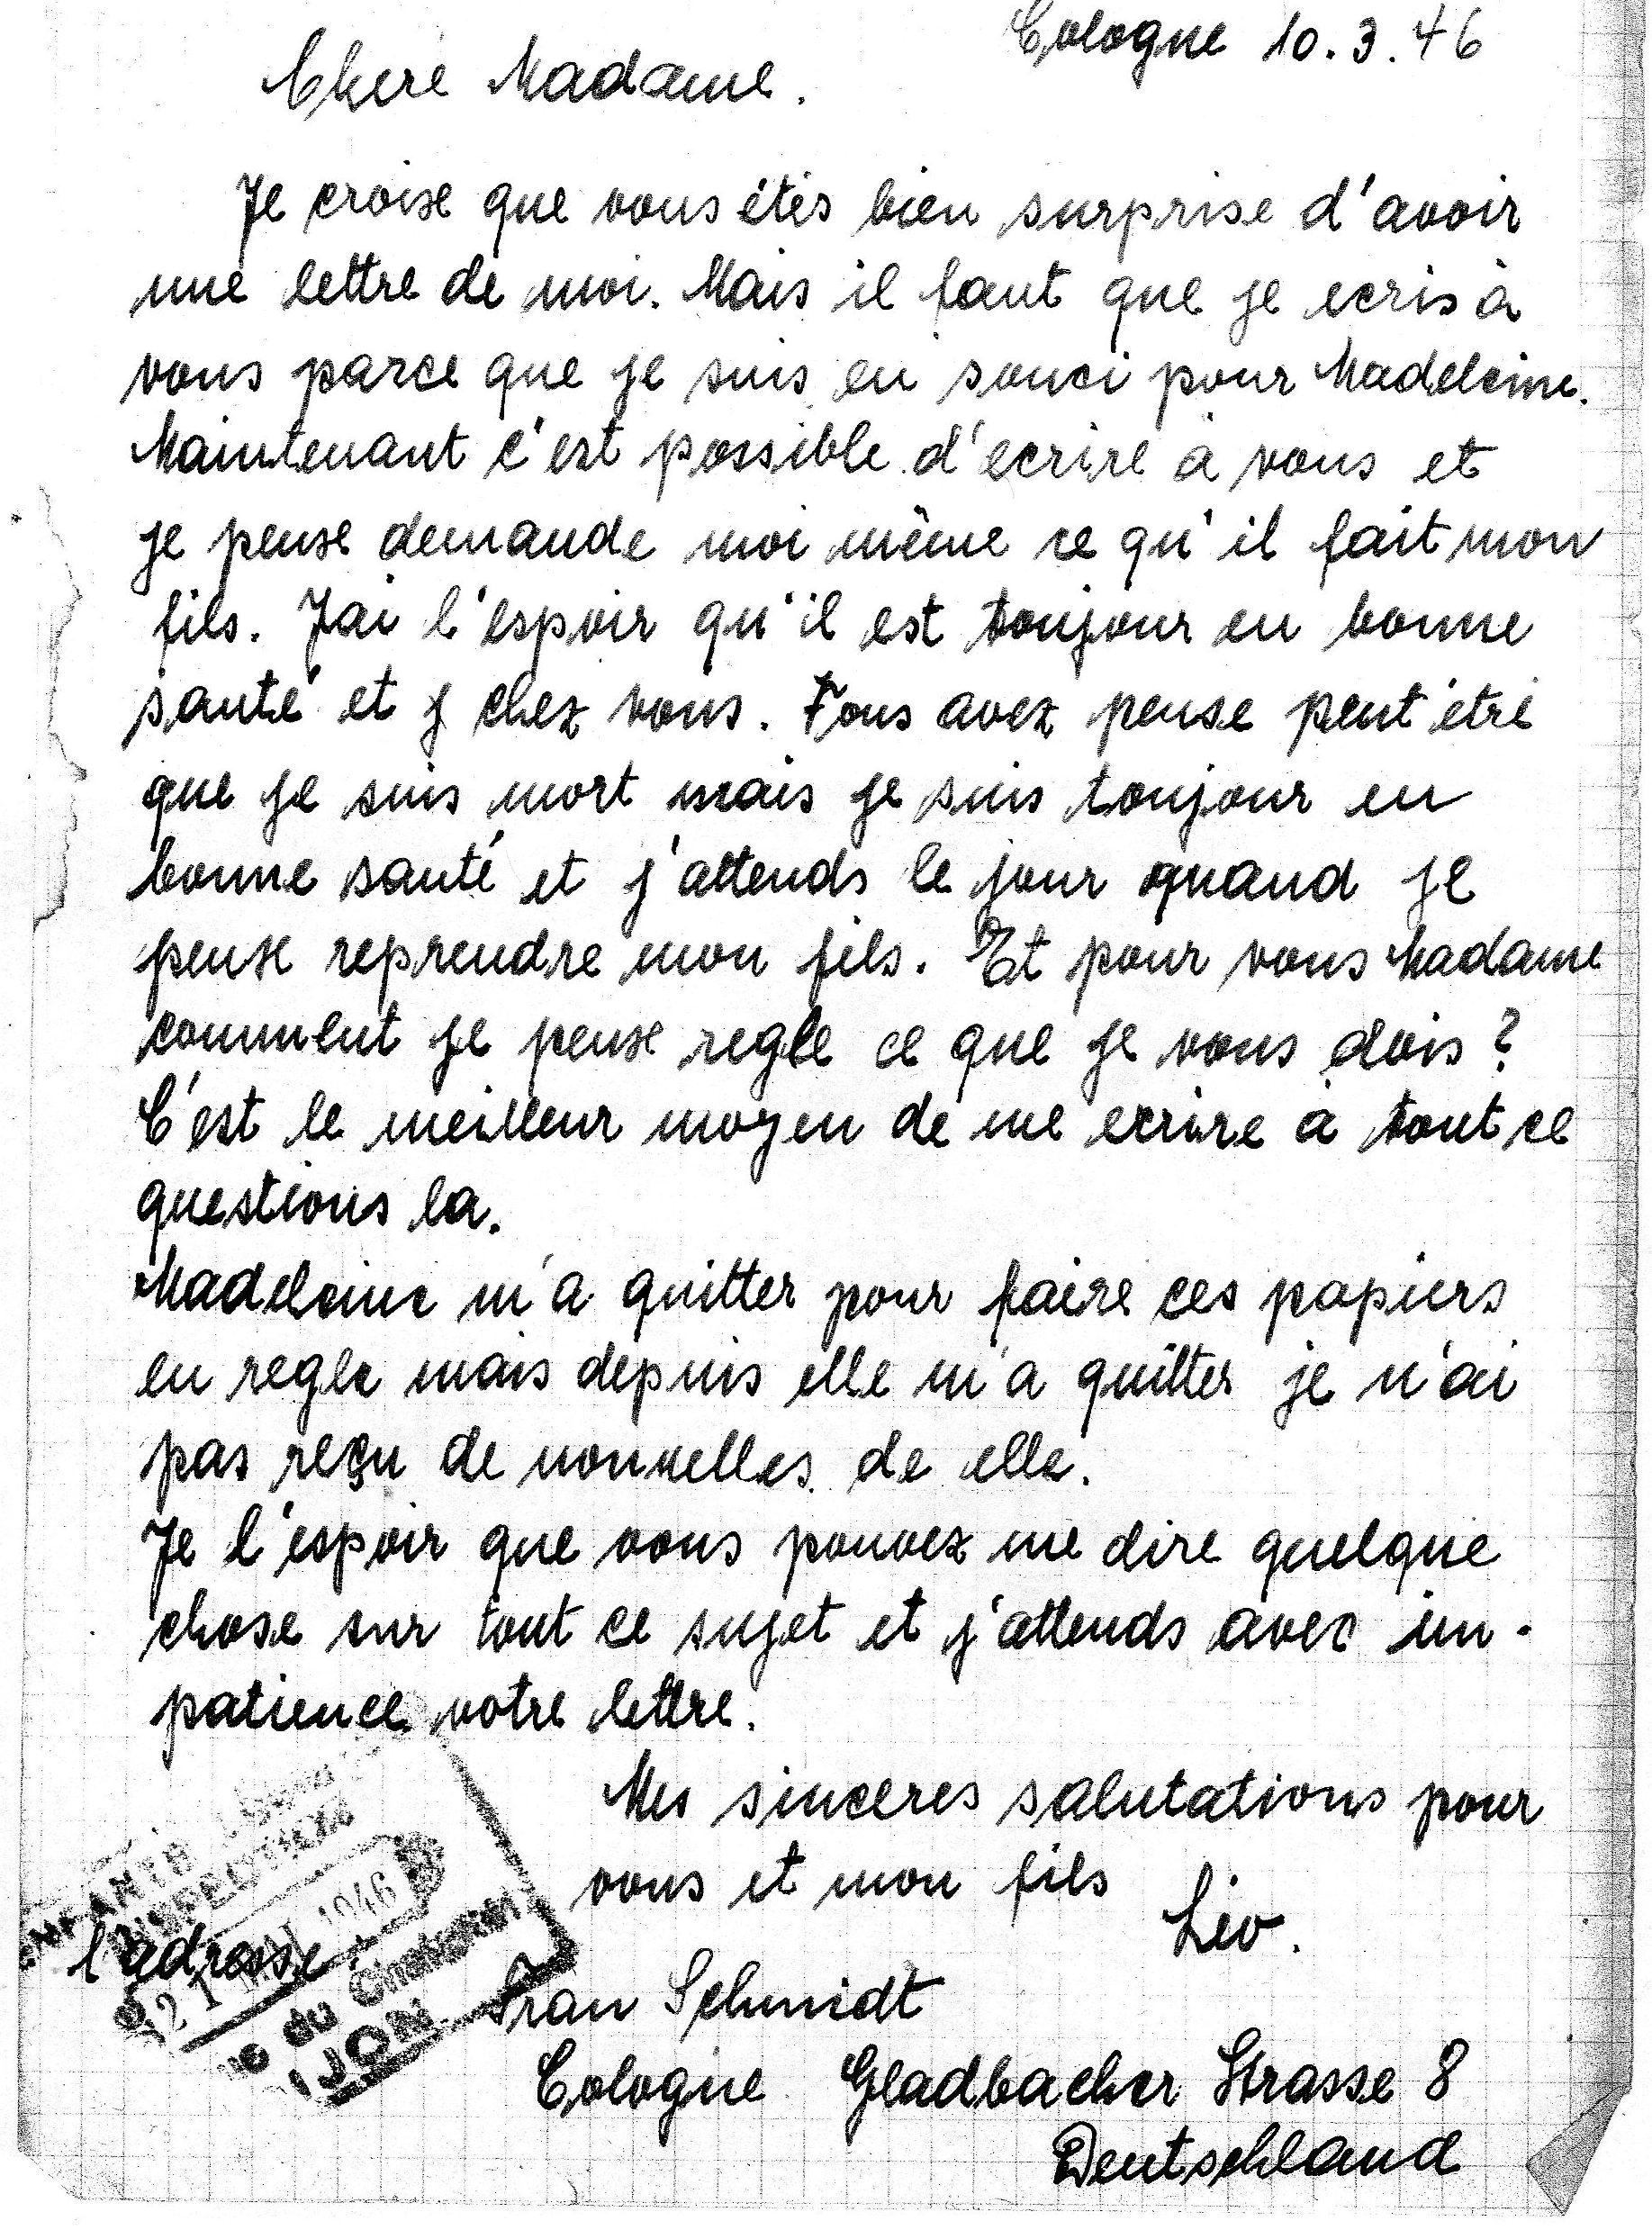 Cologne 10.3.46
Chere Madame.
Je croise que vous étés bien surprise d'avoir
une lettre de moi. Mais il faut que je ecris à
vous parce que je suis en souci pour Madeleine.
Maintenant c'est possible d'ecrire à vous et
je peuse demande moi même ce qu'il fait mon
fils. J'ai l'espoir qu'il est toujour en bonne
santé et chez vous. Vous avez pense peut être
que je suis mort mais je suis toujour en
bonne santé et j'attends le jour quand je
peuse reprendre mon fils. Et pour vous Madame
comment je peuse regle ce que je vous dois ?
C'est le meilleur moyen de me ecrire à tout ce
questions la.
Madeleine m'a quitter pour faire ces papiers
en regle mais depuis elle m'a quitter je n'ai
pas reçu de nouvelles de elle.
Je l'espoir que vous pouvez me dire quelque
chose sur tout ce sujet et j'attends avec im-
patience votre lettre.
Mes sinceres salutations pour
vous et mon fils
l'adresse
1946
12
du
DIJON
Frau Schmidt
Cologne Gladbacher Strasse 8
Deutschland